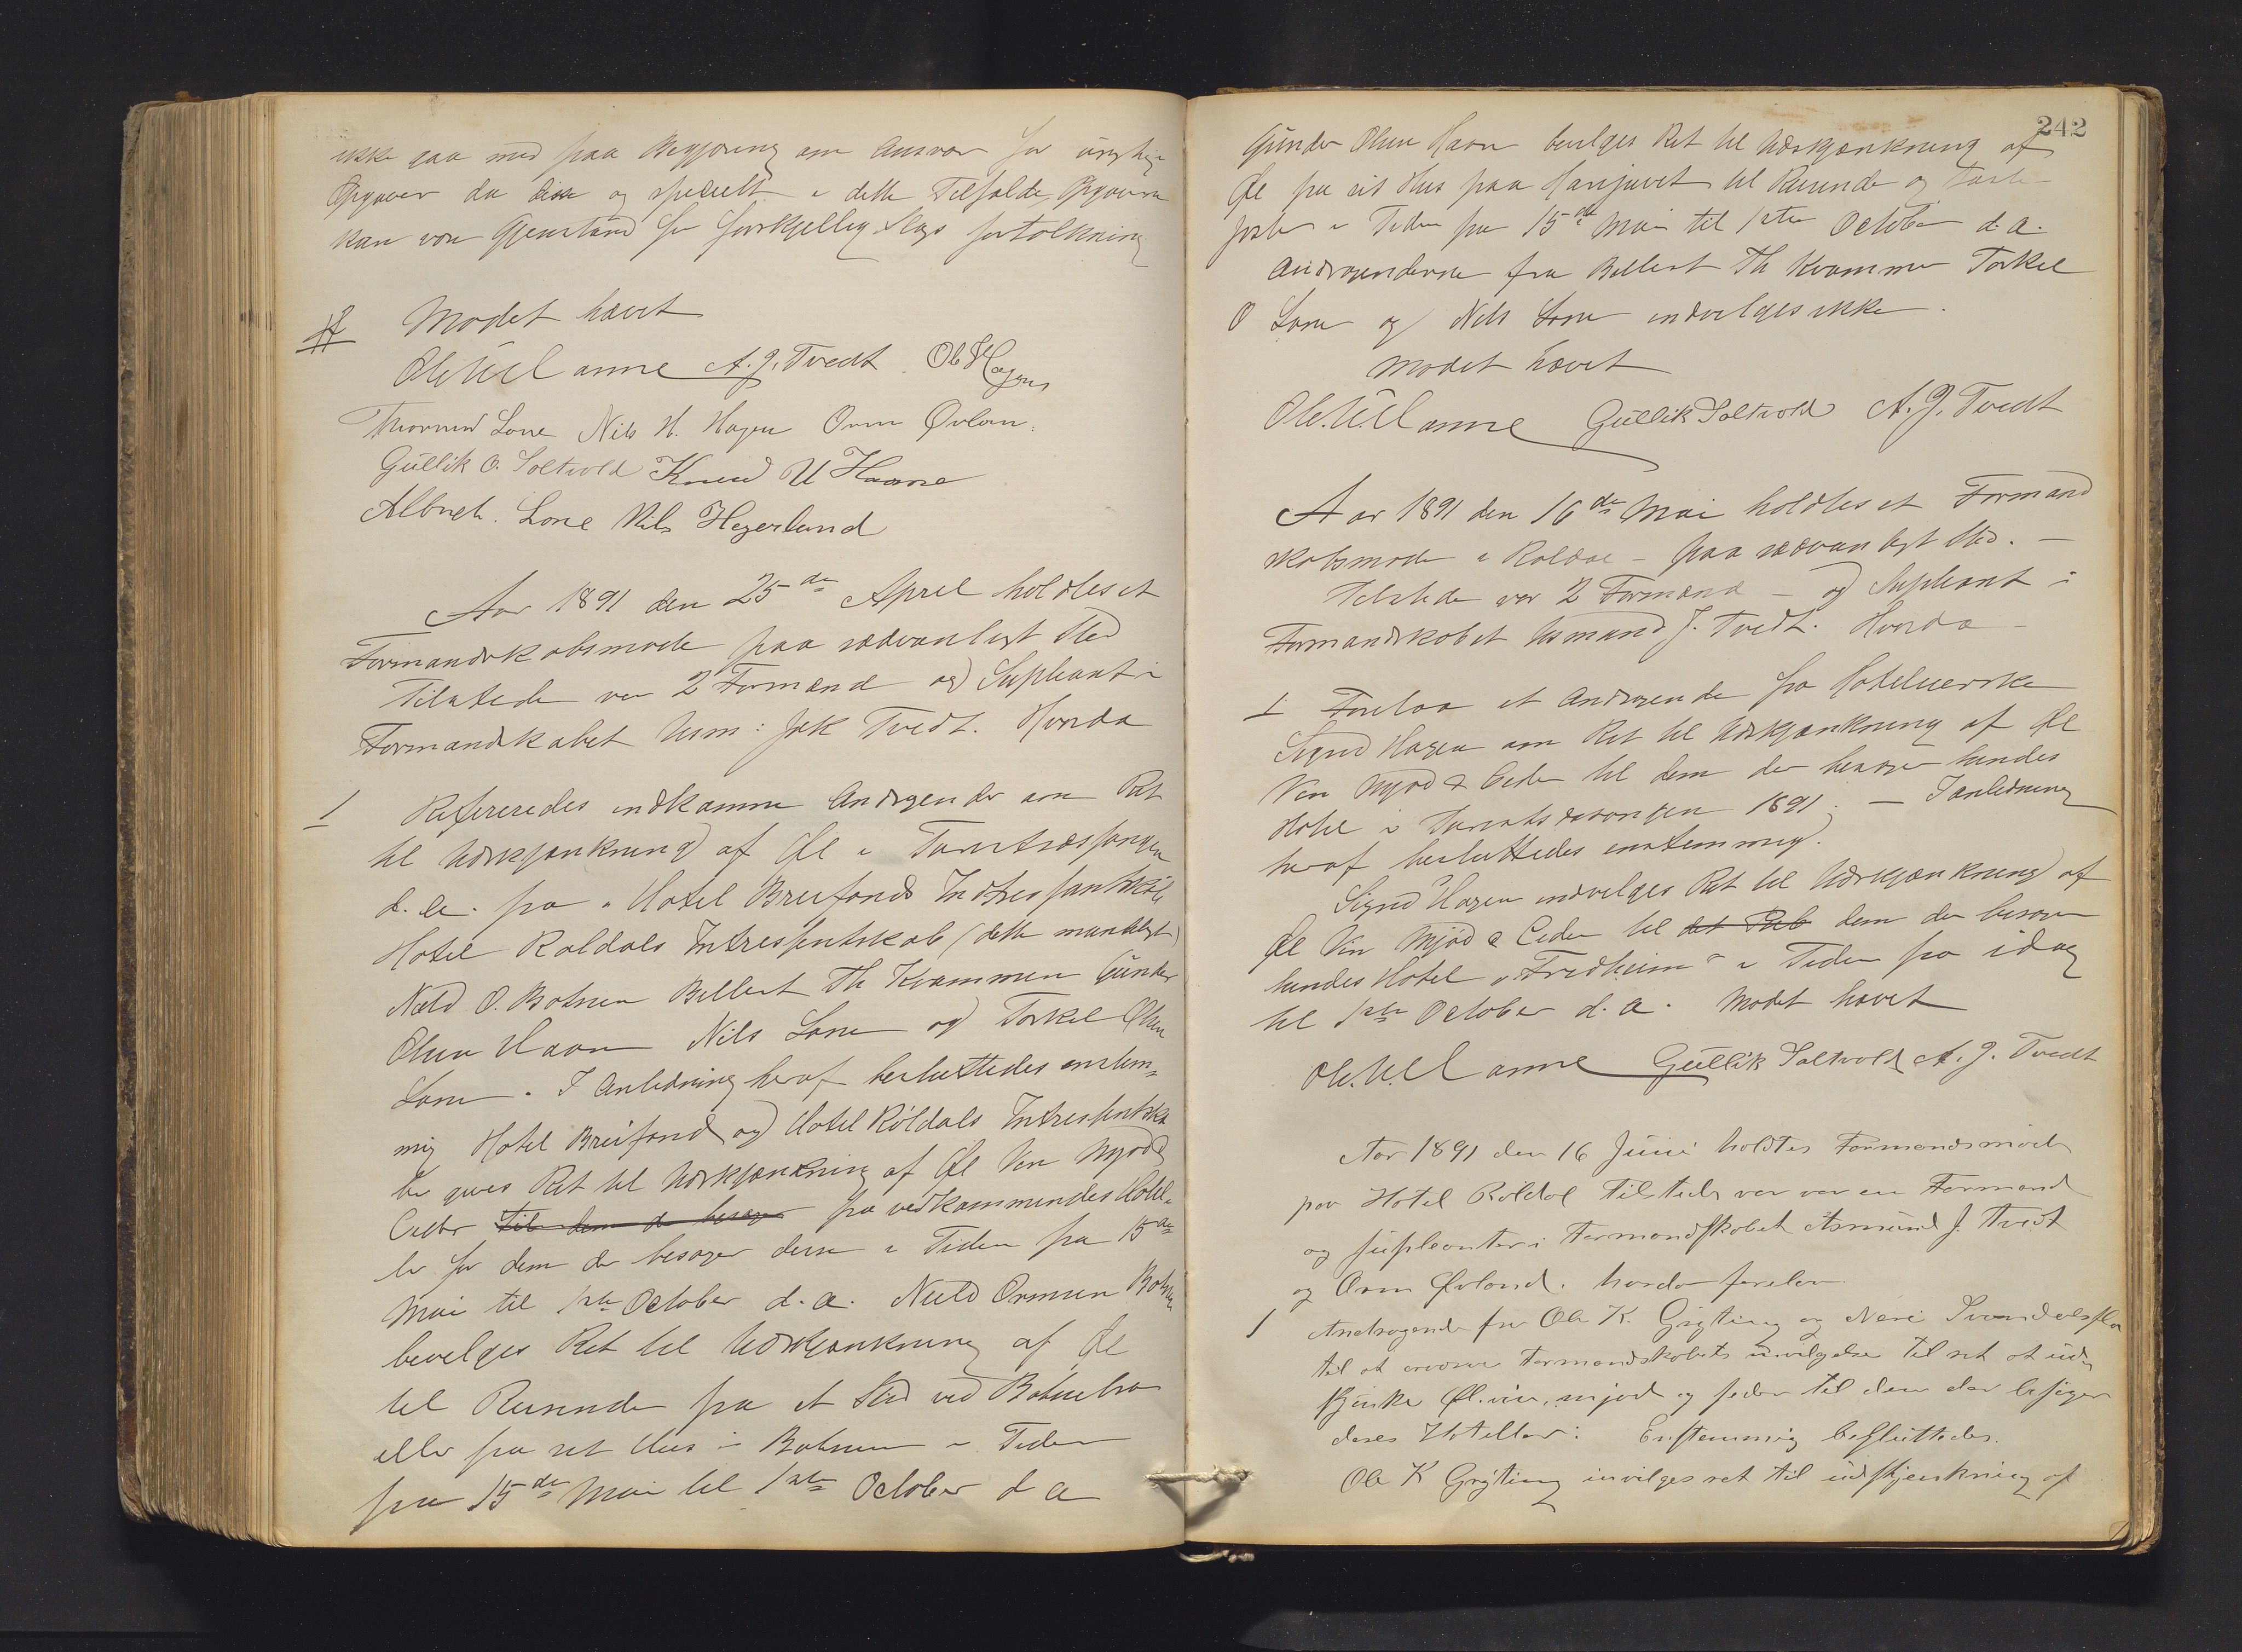 ikke gaa med paa Begjæring om Ansvar for urigtige
Opgaver da disse og specielt i dette Tilfælde Opgaverne
kan være Gjenstand for forskjellig Slags fortolkning
Mødet hævet
A. J. Tvedt Ole Hagen
Lone Nils H. Hagen Orm Øvland.
Gullik O. Saltvold Knud U Haave
Albregt. Lone Nils Hegerland
Aar 1891 den 25de April holdtes et
Formandskabsmøde paa sædvanligt Sted
Tilstede var 2 Formænd og Supleant i
Formandskabet Asm: Jsk Tvedt. Hvorda
1 Refereredes indkomne Andragender om Ret
til Udskjænkning af Øl i Turistsæsongen
d. a. fra Hotel Breifonds Intressentskab
Hotel Røldals Intressentskab (dette mundtligt)
Neld O. Botnen Bellest Th Kvammen Gunder
Olsen Haave Nils Lone og Torkel Olsen
Lone. I Anledning heraf besluttedes enstem-
mig Hotel Breifond og Hotel Røldals Intressentska
be gives Ret til Udskjænkning af Øl Vin Mjød &
Ceder til dem de besøger fra vedkommendes Hotel-
ler for dem der besøger disse i Tiden fra 15de
Mai til 1ste October d. a. Neld Ormsen Botnen
bevilges Ret til Udskjænkning af Øl
til Reisende fra et Sted ved Botnebro
eller fra sit Hus i Botnen i Tiden
fra 15de Mai til 1ste October d a
242
Gunder Olsen Haave bevilges Ret til Udskjænkning af
Øl fra sit Hus paa Horrjuvet til Reisende og
i Tiden fra 15de Mai til 1ste October d. a.
Andragenderne fra Bellest Th Kvammen Torkel
O Lone og Nils Lone indvilges ikke.
Mødet hævet
Gullik Saltvold A. J. Tvedt
Aar 1891 den 16de Mai holdtes et Formand
skabsmøde i Røldal - paa sædvanligt Sted. -
Tilstede var 2 Formænd - og Supleant i
Formandskabet Asmund J. Tvedt. Hvorda -
1 Forelaa et Andragende fra Hotelværtske
Sigrid Hagen om Ret til Udskjænkning af Øl
Vin Mjød & Ceder til dem der besøger hendes
Hotel i Turistsæsongen 1891. - I anledning
heraf besluttedes enstemmig.
Sigrid Hagen indvilges Ret til Udskjænkning af
Øl Vin Mjød & Ceder til det Pub dem der besøger
hendes Hotel "Fredheim" i Tiden fra idag
til 1ste October d. a. Mødet hævet
Gullik Saltvold A. J. Tvedt
Aar 1891 den 16 Juni holdtes Formandsmøde
paa Hotel Røldal tilstede var var en Formand
og supleanter i Formandskabet Asmund J. Tvedt
og Orm Øvland. hvorda forelaa
1 Andragende fra Ole K. Grytting og Neri Svandalsflo
til at erværve Formandskabets invilgelse til ret at ud-
skjenke Øl. vin, mjød og seder til dem der besøger
deres Hoteller: Enstemmig besluttedes.
Ole K Grytting invilges ret til udskjenkning af